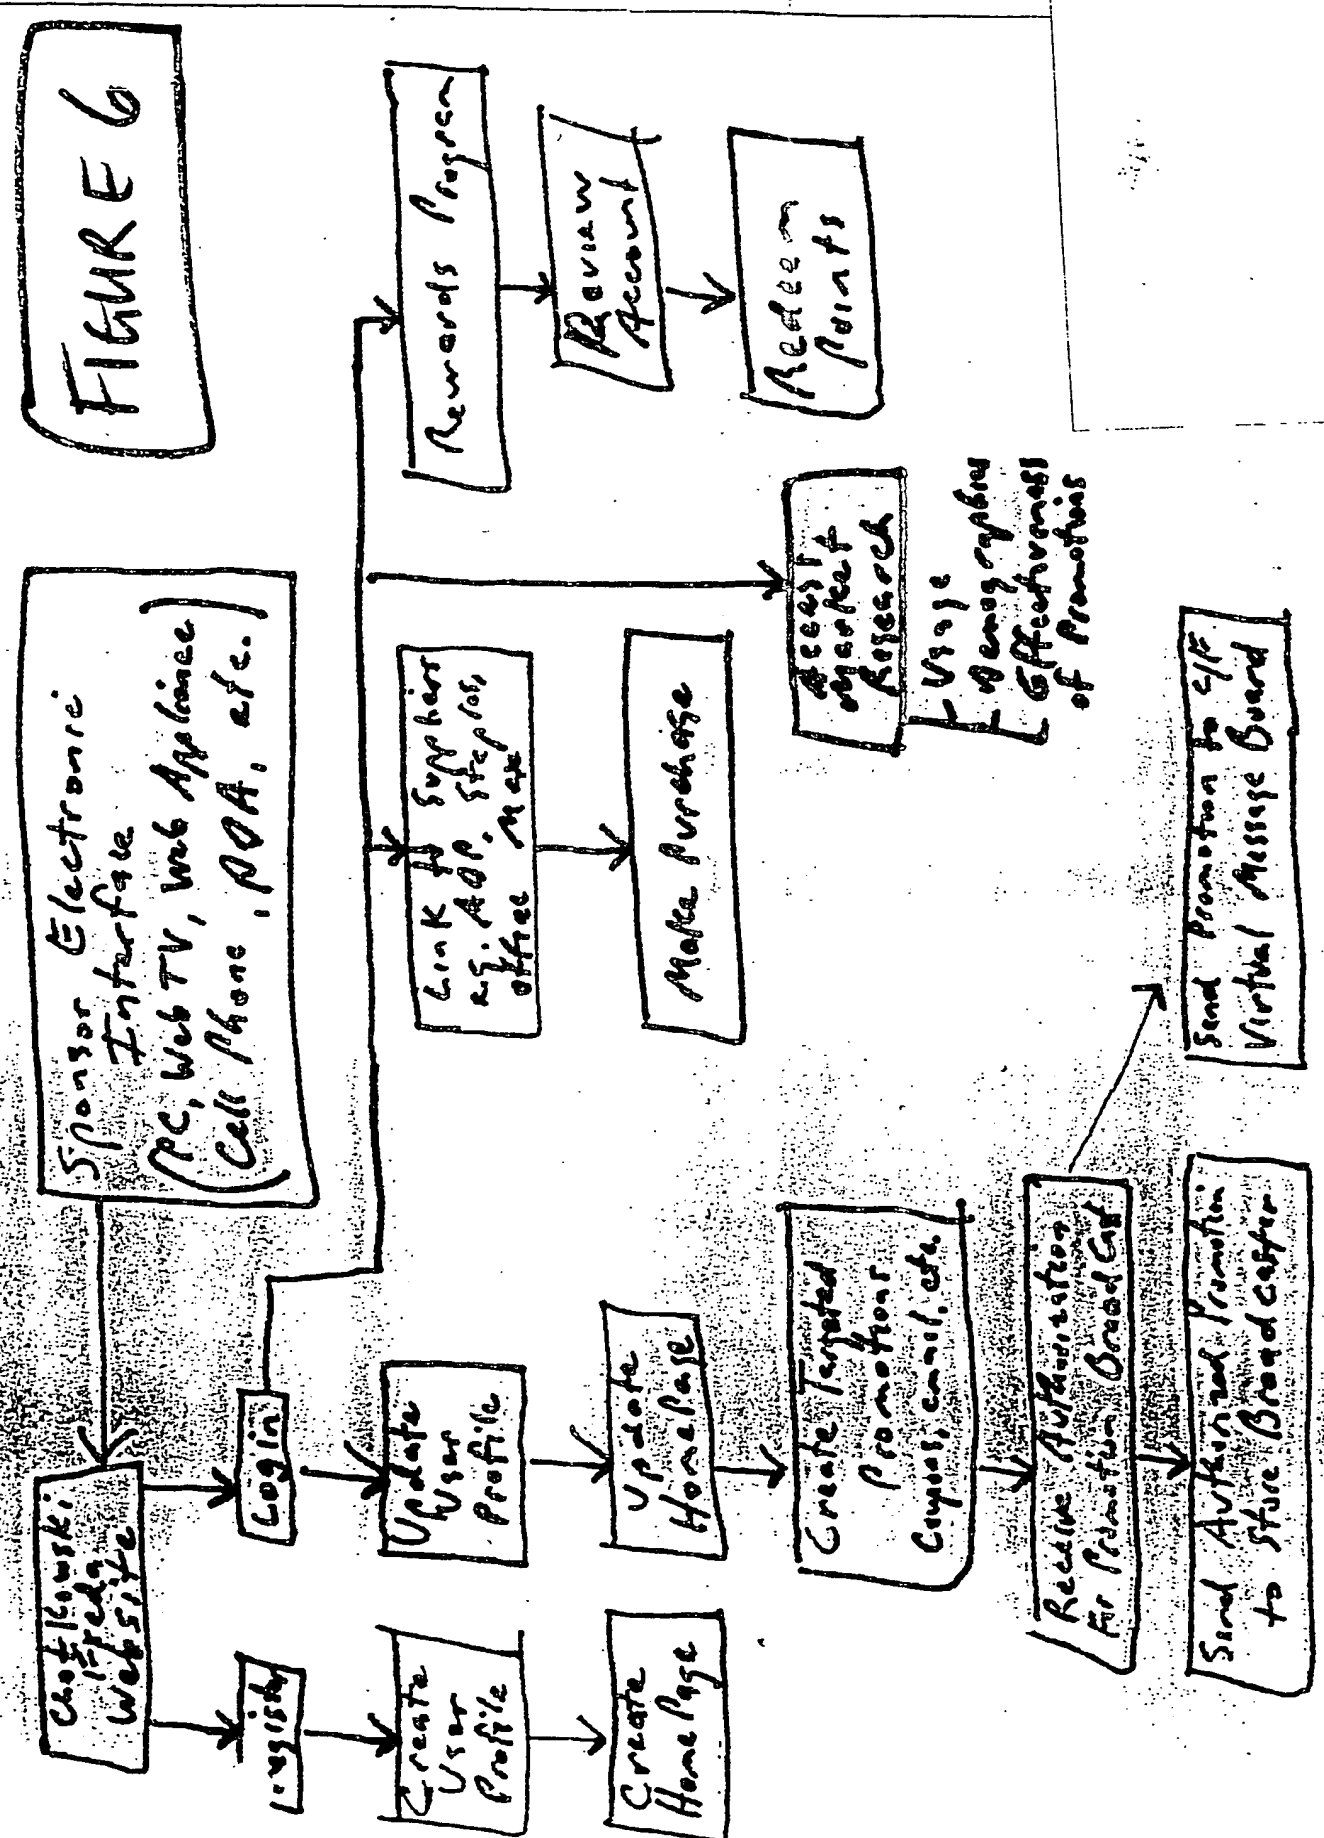 FIGURE 6
Sponsor Electronic
Interface
(PC, Web TV, Web Appliance
Cell Phone, PDA, etc.)
Website
Login
Register
Update
User
Profile
Create
User
Profile
Update
HomePage
Create
Home Page
Create Targeted
Promotions
Coupons, email, etc.
Receive Authorization
For Promotion BroadCast
Send Authorized Promotion
to Store Broadcaster
Send Promotion to
Virtual Message Board
Link to Suppliers
e.g. ADP, Staples,
Office Max
Make Purchase
Access
Market
Research
Usage
Demographics
Effectiveness
of Promotions
Rewards Program
Review
Account
Redeem
Points